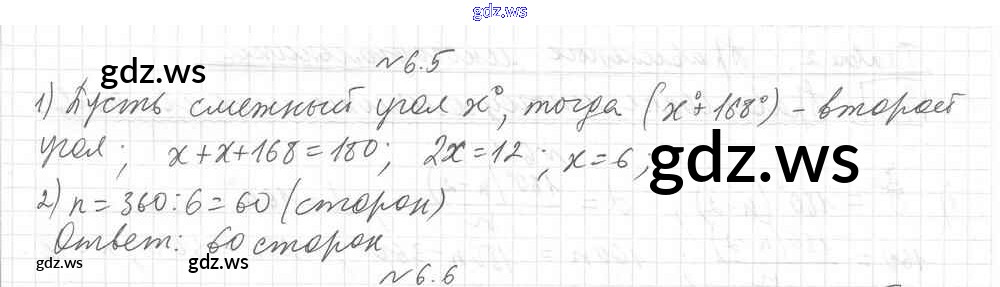 gdz.ws
№6.5
gdz.ws
1) Пусть смежный угол x°, тогда (x°+168°) – второй
угол; x+x+168=180; 2x=12; x=6;
gdz.ws
2) n=360:6=60 (сторон)
Ответ: 60 сторон
gdz.ws gdz.ws gdz.ws
№6.6